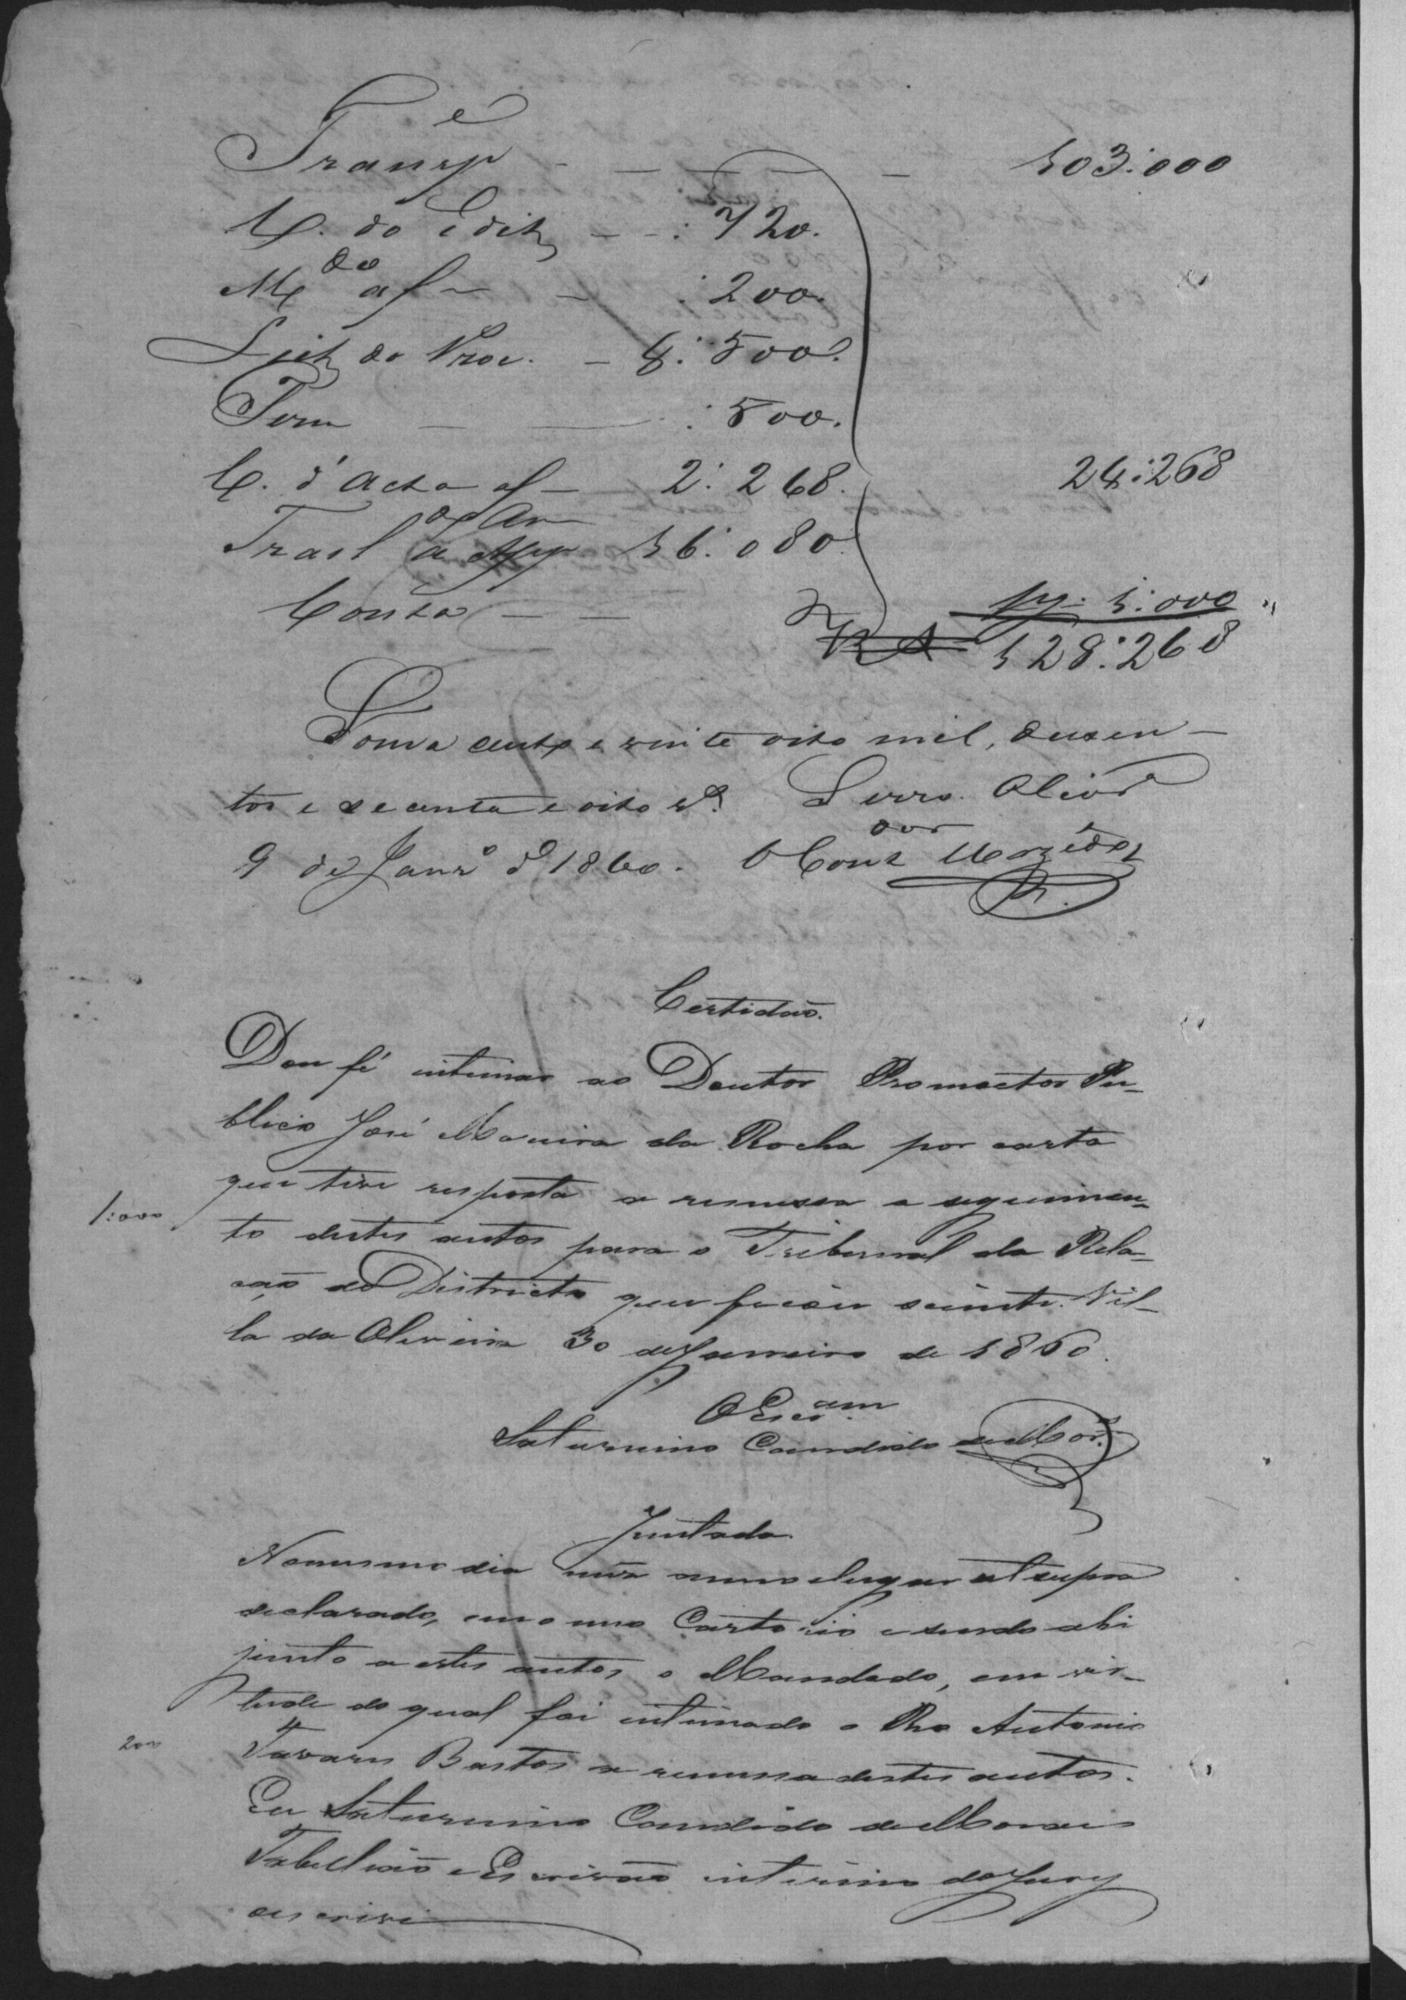 Transp.e - - - - 103:000
C. do Edit. - - : 720.
M.do af - - : 200.
Lieit. do Proc. - 4: 500.
Term - - : 500.
C. d'Acta af - 2: 268. 24:268
Trasl. de An a App 16: 080.
Conta - - pg. 1:000
R S 128:268
Soma cento e vinte oito mil, dusen-
tos e secenta e oito rs. Serro. Olivr.a
9 de Janr.o d 1860. O Cont.dor
Certidão.
Dou fé intimar ao Doutor Promoctor Pu-
blico José Moreira da Rocha por carta
que tive resposta a remessa e seguimen-
to destes autos para o Tribunal da Rela-
ção do Districto que ficou sciente. Vil-
la da Oliveira 30 de Janeiro de 1860.
1:000
O Escr.am
Saturnino Candido de Mor.s
Juntada
No mesmo dia mez anno e lugar ut supra
declarado, em o meu Cartorio e sendo ahi
junto a estes autos o Mandado, em vir-
tude do qual foi intimado o Reo Antonio
Tavares Bastos a remessa destes autos.
200
Eu Saturnino Candido de Moraes
Tabellião e Escrivão interino do Jury
o escrivi